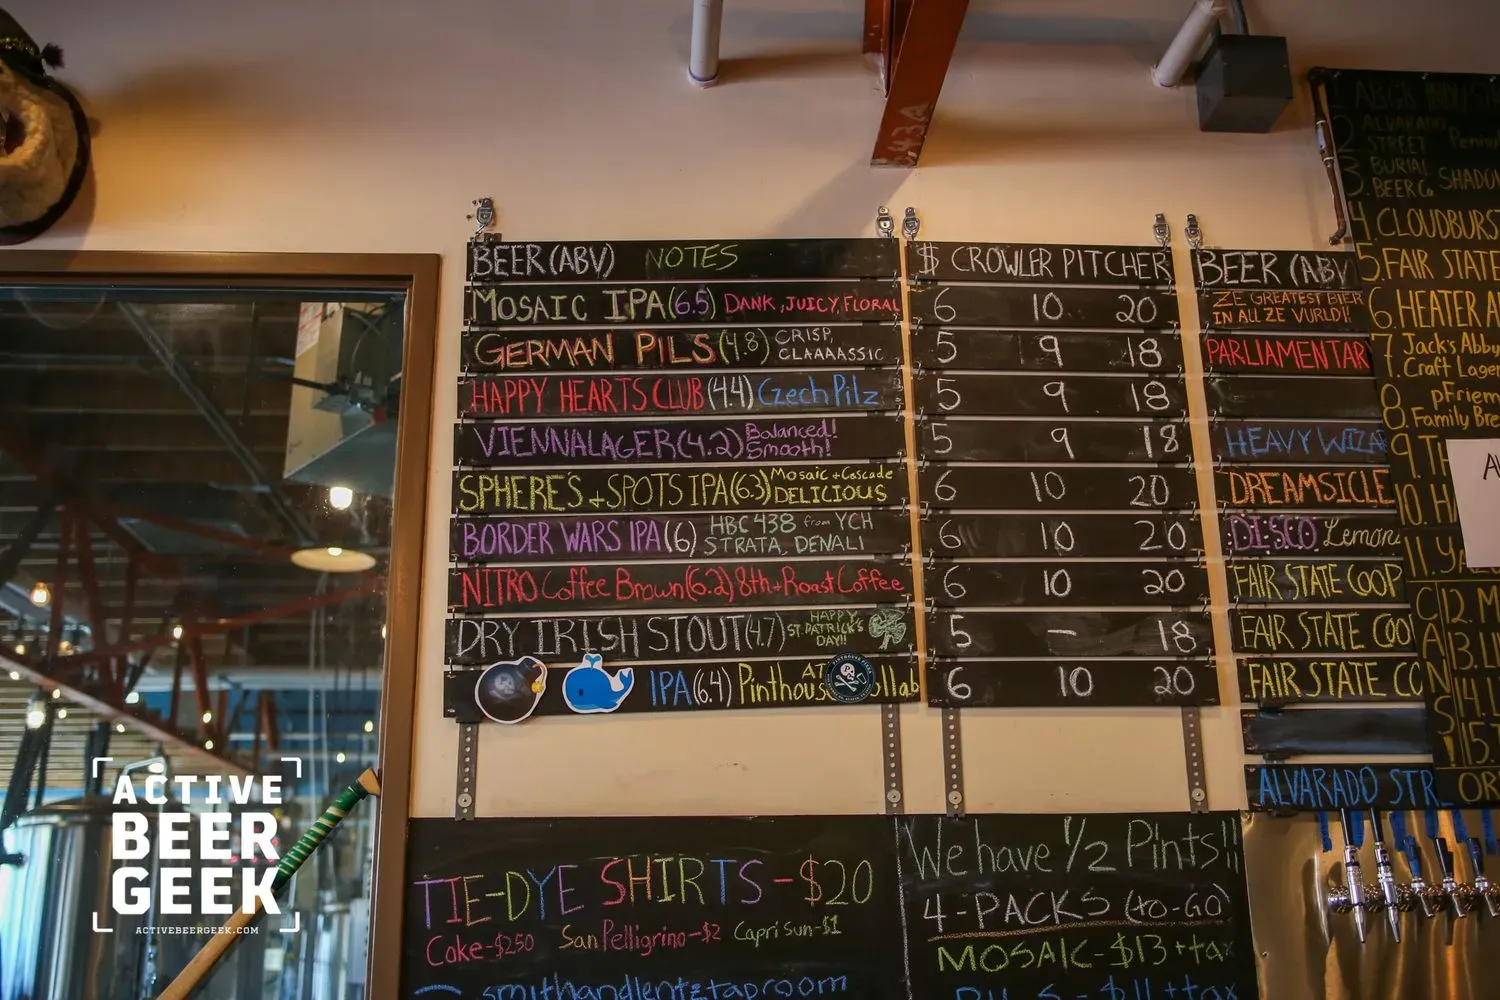 BEER (ABV) NOTES $ CROWLER PITCHER
MOSAIC IPA (6.5) DANK, JUICY, FLORAL 6 10 20
GERMAN PILS (4.8) CRISP,
CLAAAASSIC 5 9 18
HAPPY HEARTS CLUB (4.4) Czech Pilz 5 9 18
VIENNALAGER (4.2) Balanced!
Smooth! 5 9 18
SPHERES + SPOTS IPA (6.3) Mosaic + Cascade
DELICIOUS 6 10 20
BORDER WARS IPA (6) HBC 438 from YCH
STRATA, DENALI 6 10 20
NITRO Coffee Brown (6.2) 8th + Roast Coffee 6 10 20
DRY IRISH STOUT (4.7) HAPPY
ST PATRICK'S
DAY!! 5 — 18
IPA (6.4) Pinthous AT ollab 6 10 20
BEER (ABV
ZE GREATEST BIER
IN ALL ZE VURLD!
PARLIAMENTAR
HEAVY WIZA
DREAMSICLE
DISCO Lemon
FAIR STATE COOP
FAIR STATE COO
FAIR STATE CO
ALVARADO STR
2. ALVARADO
STREET
3. BURIAL
BEER Co SHADO
4. CLOUDBURS
5. FAIR STATE
6. HEATER A
7. Jack's Abby
Craft Lager
8. pFriem
Family Bre
9. TH
10. HA
11. YA
12. M
13. L
14. L
15.
CANS!
OR
TIE-DYE SHIRTS - $20
Coke - $250 San Pelligrino - $2 Capri Sun - $1
smithandlentztaproom
We have 1/2 Pints!!
4-PACKS (to-GO)
MOSAIC - $13 + tax
PILS - $11 + tax
ACTIVE
BEER
GEEK
ACTIVEBEERGEEK.COM